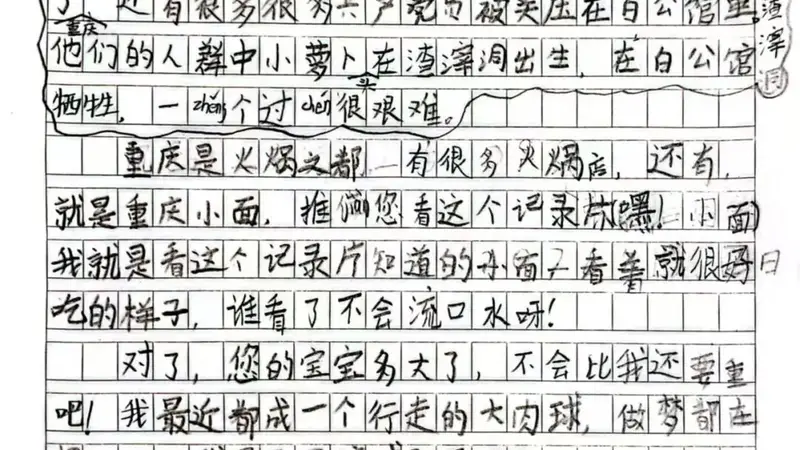 了，还有很多很多共产党员被关压在白公馆里。渣滓洞
重庆
他们的人群中小萝卜头在渣滓洞出生，在白公馆
牺牲，一zhěng个过chéng很艰难。
重庆是火焖之都，有很多火焖店，还有，
就是重庆小面，推您看这个记录片《嘿！小面》
我就是看这个记录片知道的小面，看着就很好
吃的样子，谁看了不会流口水呀！
对了，您的宝宝多大了，不会比我还要重
吧！我最近都成一个行走的大肉球，做梦都在